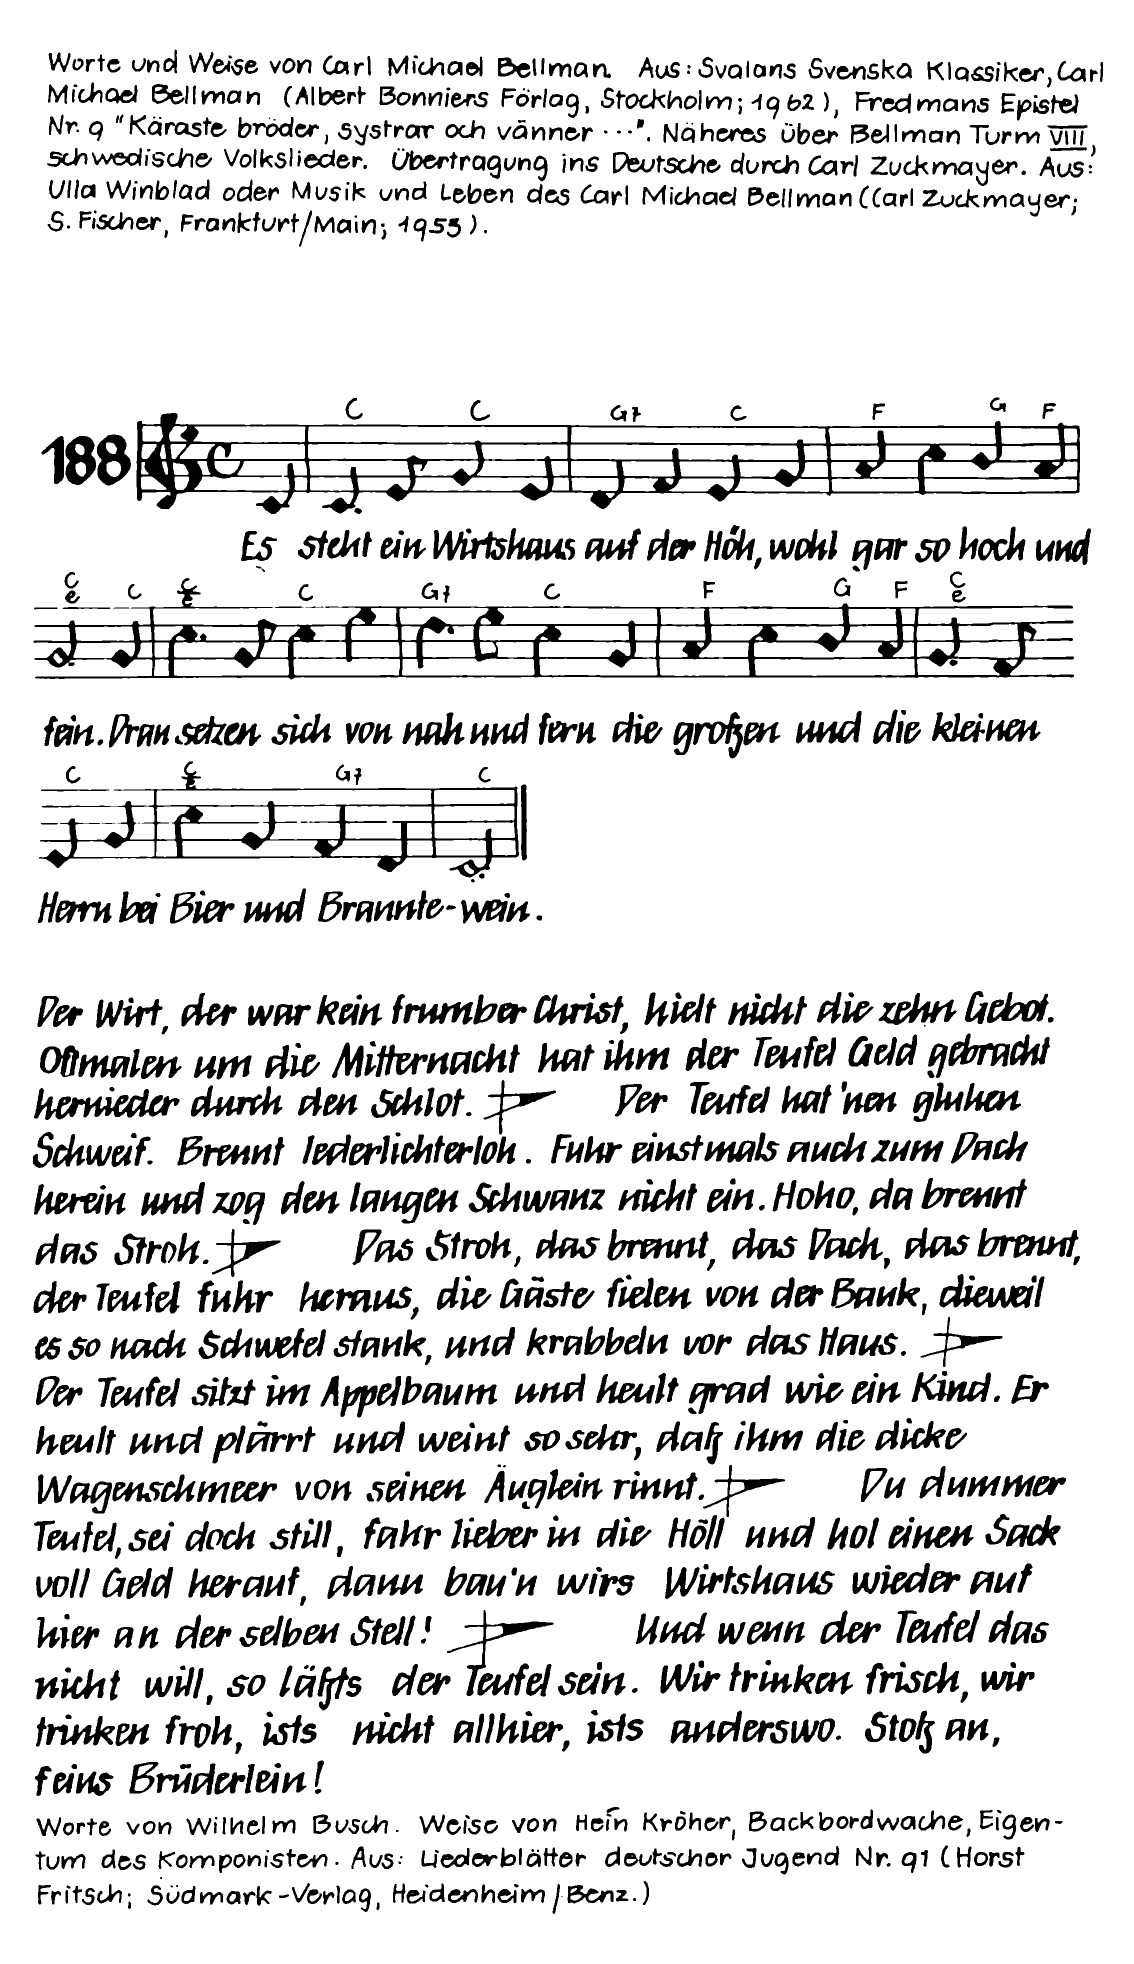 Worte und Weise von Carl Michael Bellman. Aus: Svalans Svenska Klassiker, Carl
Michael Bellman (Albert Bonniers Förlag, Stockholm; 1962), Fredmans Epistel
Nr. 9 "Käraste bröder, systrar och vänner ...". Näheres über Bellman Turm VIII,
schwedische Volkslieder. Übertragung ins Deutsche durch Carl Zuckmayer. Aus:
Ulla Winblad oder Musik und Leben des Carl Michael Bellman (Carl Zuckmayer;
S. Fischer, Frankfurt/Main; 1953).
C C G7 C F G F
188
Es steht ein Wirtshaus auf der Höh, wohl gar so hoch und
C e C C e C G7 C F G F C e
fein. Dran setzen sich von nah und fern die großen und die kleinen
C C e G7 C
Herrn bei Bier und Brannte-wein.
Der Wirt, der war kein frumber Christ, hielt nicht die zehn Gebot.
Oftmalen um die Mitternacht hat ihm der Teufel Geld gebracht
hernieder durch den Schlot. Der Teufel hat 'nen gluhen
Schweif. Brennt lederlichterloh. Fuhr einstmals auch zum Dach
herein und zog den langen Schwanz nicht ein. Hoho, da brennt
das Stroh. Das Stroh, das brennt, das Dach, das brennt,
der Teufel fuhr heraus, die Gäste fielen von der Bank, dieweil
es so nach Schwefel stank, und krabbeln vor das Haus.
Der Teufel sitzt im Appelbaum und heult grad wie ein Kind. Er
heult und plärrt und weint so sehr, daß ihm die dicke
Wagenschmeer von seinen Äuglein rinnt. Du dummer
Teufel, sei doch still, fahr lieber in die Höll und hol einen Sack
voll Geld herauf, dann bau'n wirs Wirtshaus wieder auf
hier an der selben Stell! Und wenn der Teufel das
nicht will, so läßts der Teufel sein. Wir trinken frisch, wir
trinken froh, ists nicht allhier, ists anderswo. Stoß an,
feins Brüderlein!
Worte von Wilhelm Busch. Weise von Hein Kröher, Backbordwache, Eigen-
tum des Komponisten. Aus: Liederblätter deutscher Jugend Nr. 91 (Horst
Fritsch; Südmark-Verlag, Heidenheim/Benz.)